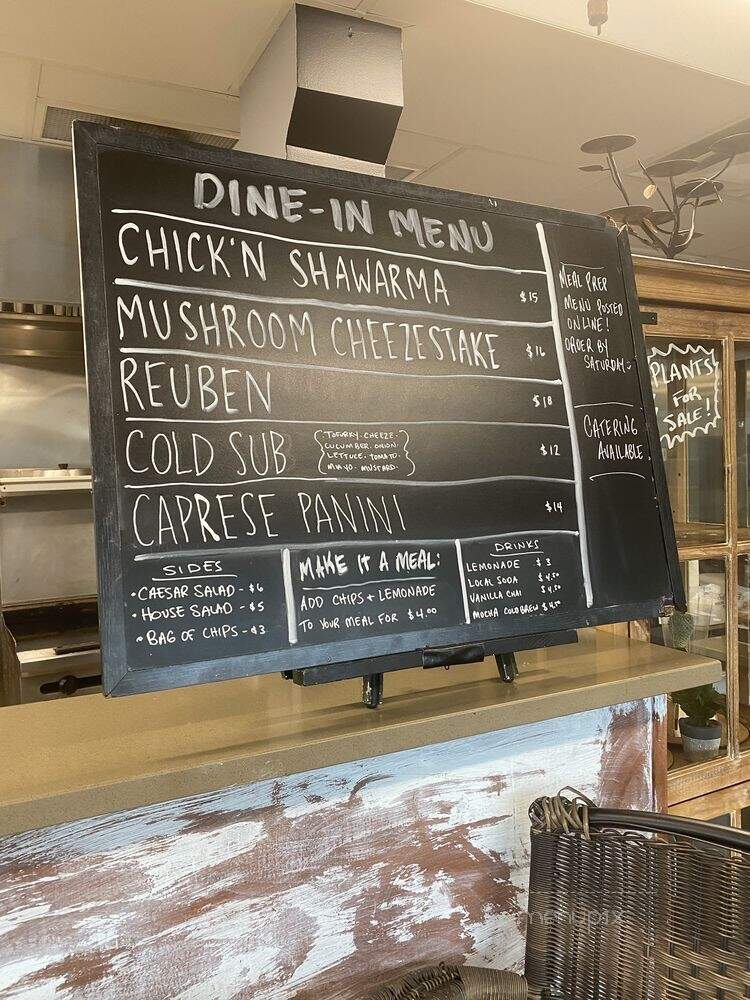 DINE-IN MENU
CHICK'N SHAWARMA $15
MUSHROOM CHEEZESTAKE $16
REUBEN $18
COLD SUB
TOFURKY · CHEEZE ·
CUCUMBER · ONION ·
LETTUCE · TOMATO ·
MAYO · MUSTARD ·
$12
CAPRESE PANINI $14
SIDES
• CAESAR SALAD - $6
• HOUSE SALAD - $5
• BAG OF CHIPS - $3
MAKE IT A MEAL:
ADD CHIPS + LEMONADE
TO YOUR MEAL FOR $4.00
DRINKS
LEMONADE $3
LOCAL SODA $4.50
VANILLA CHAI $4.50
MOCHA COLD BREW $4.50
MEAL PREP
MENU POSTED
ONLINE!
ORDER BY
SATURDAYS
CATERING
AVAILABLE
PLANTS
FOR
SALE!
menupix